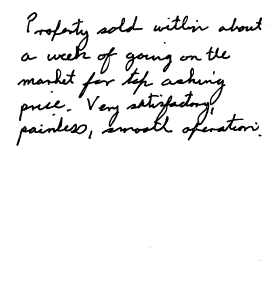 Property sold within about
a week of going on the
market for top asking
price. Very satisfactory,
painless, smooth operation.